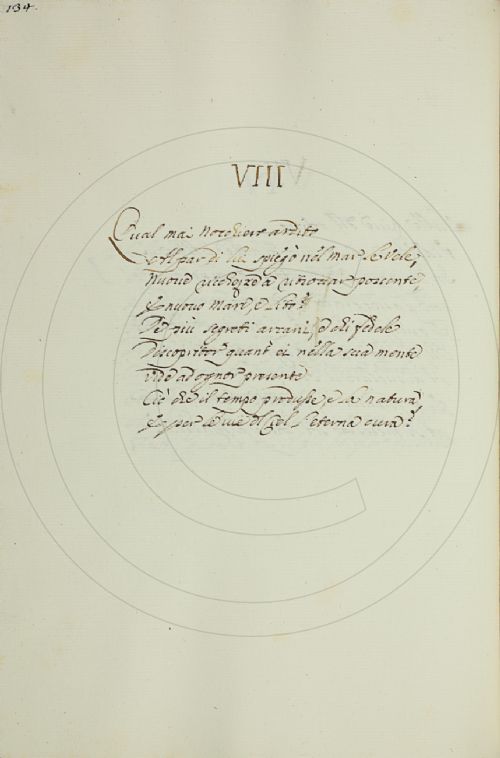 134.
VIII
Qual mai Nocchiere ardito
Al par di lui spiegò nel mar le Vele,
Nuove ricchezze a ritrovar possente,
E nuovo Mare, e Lito?
De più segreti arcani, e di fedele
Discopritor quant' ei nella sua mente
vide ad ognor presente
Ciò che il tempo produsse, e la natura
E per lei del Ciel l'eterna cura?